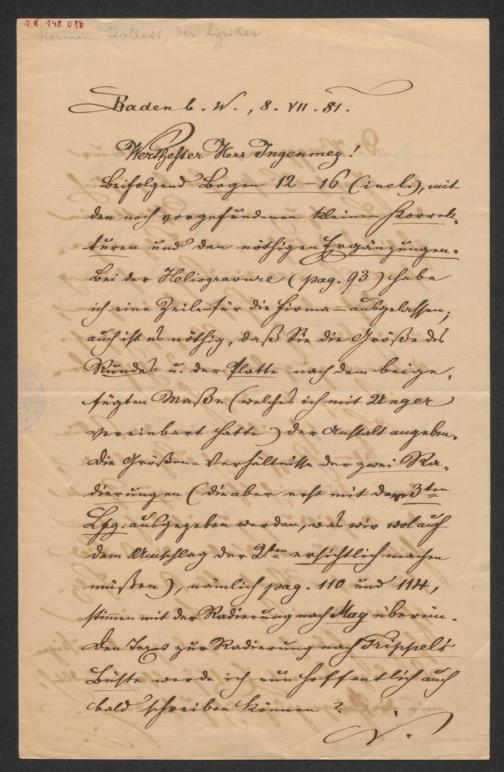 J.N. 148.056
Hermann Rollett, der Lyriker.
Baden b. W., 8. VII. 81.
Werthester Herr Ingenmey!
Beifolgend Bogen 12–16 (incl.), mit
den noch vorgefundenen kleinen Korrek-
turen und den nöthigen Ergänzungen.
Bei der Heliogravure (pag. 93) habe
ich eine Zeile für die Firma ausgelassen;
auch ist es nöthig, daß Sie die Größe des
Rundes u. der Platte nach dem beige-
fügten Maße (welches ich mit Unger
vereinbart hatte) der Anstalt angeben.
Die Größen-Verhältnisse der zwei Ra-
dierungen (die aber erst mit der 3ten
Lfg. ausgegeben werden, was wir wol auf
dem Umschlag der 2ten ersichtlich machen
müßen), nämlich pag. 110 und 114,
stimmen mit der Radierung nach May überein.
Den Text zur Radierung nach Trippel's
Büste werde ich nun hoffentlich auch
bald schreiben können?